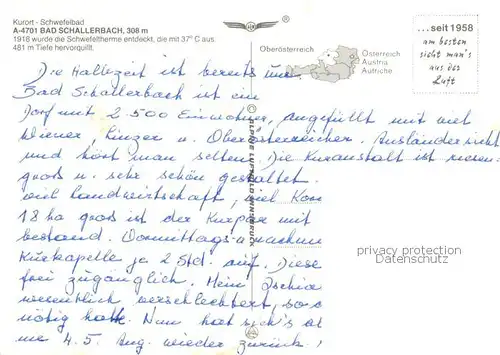 Kurort - Schwefelbad
A-4701 BAD SCHALLERBACH, 308 m
1918 wurde die Schwefeltherme entdeckt, die mit 37° C aus
481 m Tiefe hervorquillt.
Oberösterreich
Österreich
Austria
Autriche
...seit 1958
am besten
sieht man's
aus der
Luft
Die Halbzeit ist bereits um.
Bad Schallerbach ist ein
Dorf mit 2 500 Einwohner, angefüllt mit viel
Wiener, Linzer u. Oberösterreicher. Ausländer sieht
und hört man selten. Die Kuranstalt ist riesen-
groß u. sehr schön gestaltet.
viel Landwirtschaft, viel Korn
18 ha groß ist der Kurpark mit
bestand. Vormittags u. nachm
Kurkapelle je 2 Std. auf. Diese
frei zugänglich. Mein Ischia
wesentlich verschlechtert, so
nötig hatte. Nun hat sich's
4. 5. Aug. wieder zurück!
privacy protection
Datenschutz